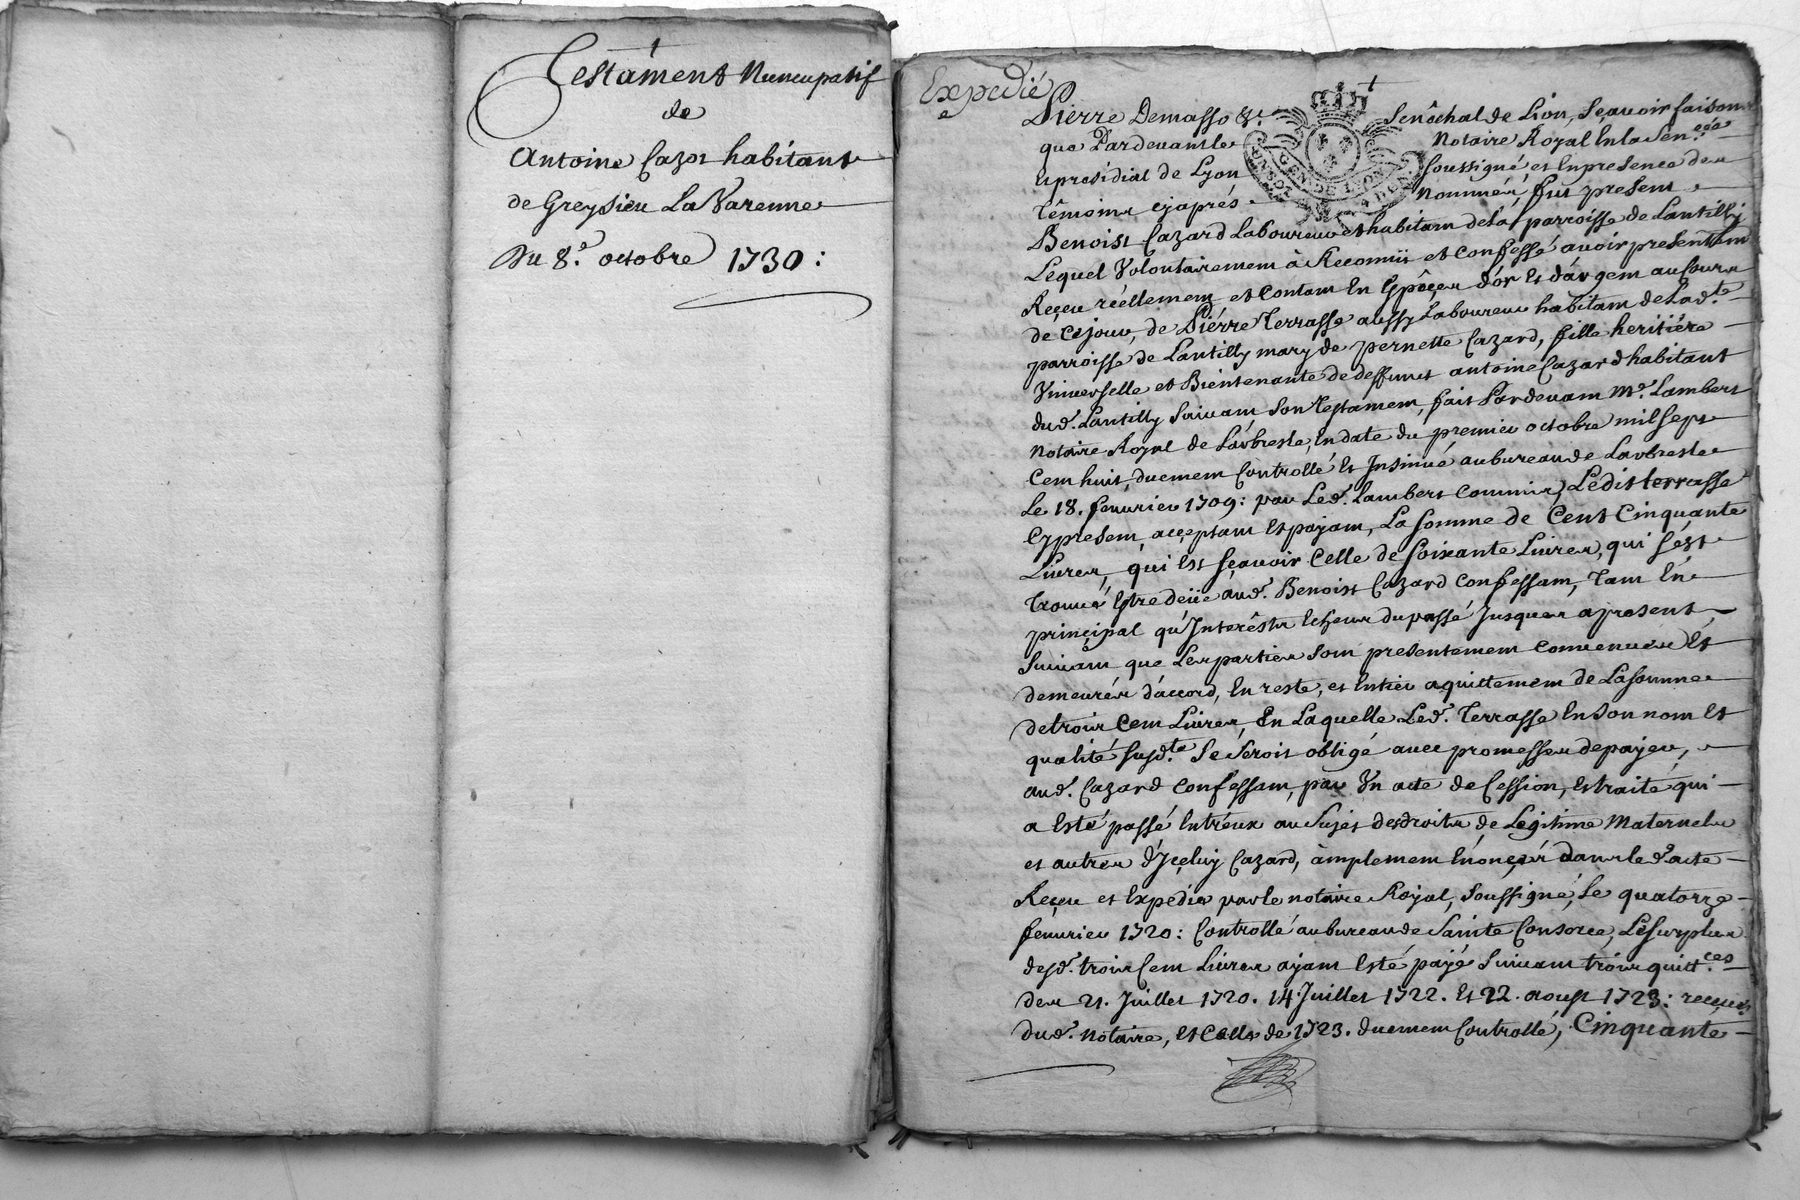 Testament Nuncupatif
de
Antoine Cazot habitant
de Greysieu La Varenne
Du 8.e octobre 1730:
Expedié
Pierre Demasso &c. Senêchal de Lion, Sçavoir faisons
que Pardevant le Notaire Royal En la Sen.ecée
Et presidial de Lyon soussigné et En presence des
têmoins cy aprés nommés, fut present
Benoist Cazard Laboureur et habitant de la parroisse de Lantilly
Lequel Volontairement à Reconnû et confessé avoir presentem.
Reçeu réellement et contant En Espêces d'or Et d'argent au Cours
de Ce jour, de Piérre Terrasse aussy Laboureur habitant de Lad.te
parroisse de Lantilly mary de pernette Cazard, fille heritiére
Vniverselle et Bientenante de deffunct antoine Cazard habitant
dud. Lantilly suivant Son testament, fait Pardevant M.e Lambert
Notaire Royal de Larbresle, En date du premier octobre mil sept
Cent huit, duement Controllé Et Jnsinué au bureau de Larbresle
Le 18. fevurier 1709: par Led. Lambert Commis, Ledit terrasse
Cy present, acçeptant Et payant, La somme de Cent Cinquante
Livres, qui Est sçavoir Celle de soixante Livres, qui s'est
trouvé Estre deüe aud. Benoist Cazard Confessant, tant En
principal qu'Jnterêsts Echeus du passé Jusques a present,
suivant que Les parties sont presentement Convenues Et
demeurés d'accord, En reste, et Entier aquittement de La somme
de trois Cent Livres, En Laquelle Led. Terrasse En son nom Et
qualité susd.te se seroit obligé avec promesse de payer,
aud. Cazard Confessant, par Vn acte de Cession, Et traité qui
a Esté passé Entr'eux au sujet des droits de Legitime Maternels
et autres d'Jçeluy Cazard, àmplement Enonçés dans led. acte
Reçeu et Expedié par le notaire Royal, soussigné, Le quatorze
fevurier 1720: Controllé au bureau de Sainte Consorce, Le surplus
desd. trois Cent Livres ayant Esté payé suivant trois quitt.ces
des 21. Juillet 1720. 14. Juillet 1722. Et 22. aoust 1723: reçeues
dud. notaire, et Celle de 1723. duement Controllé, Cinquante